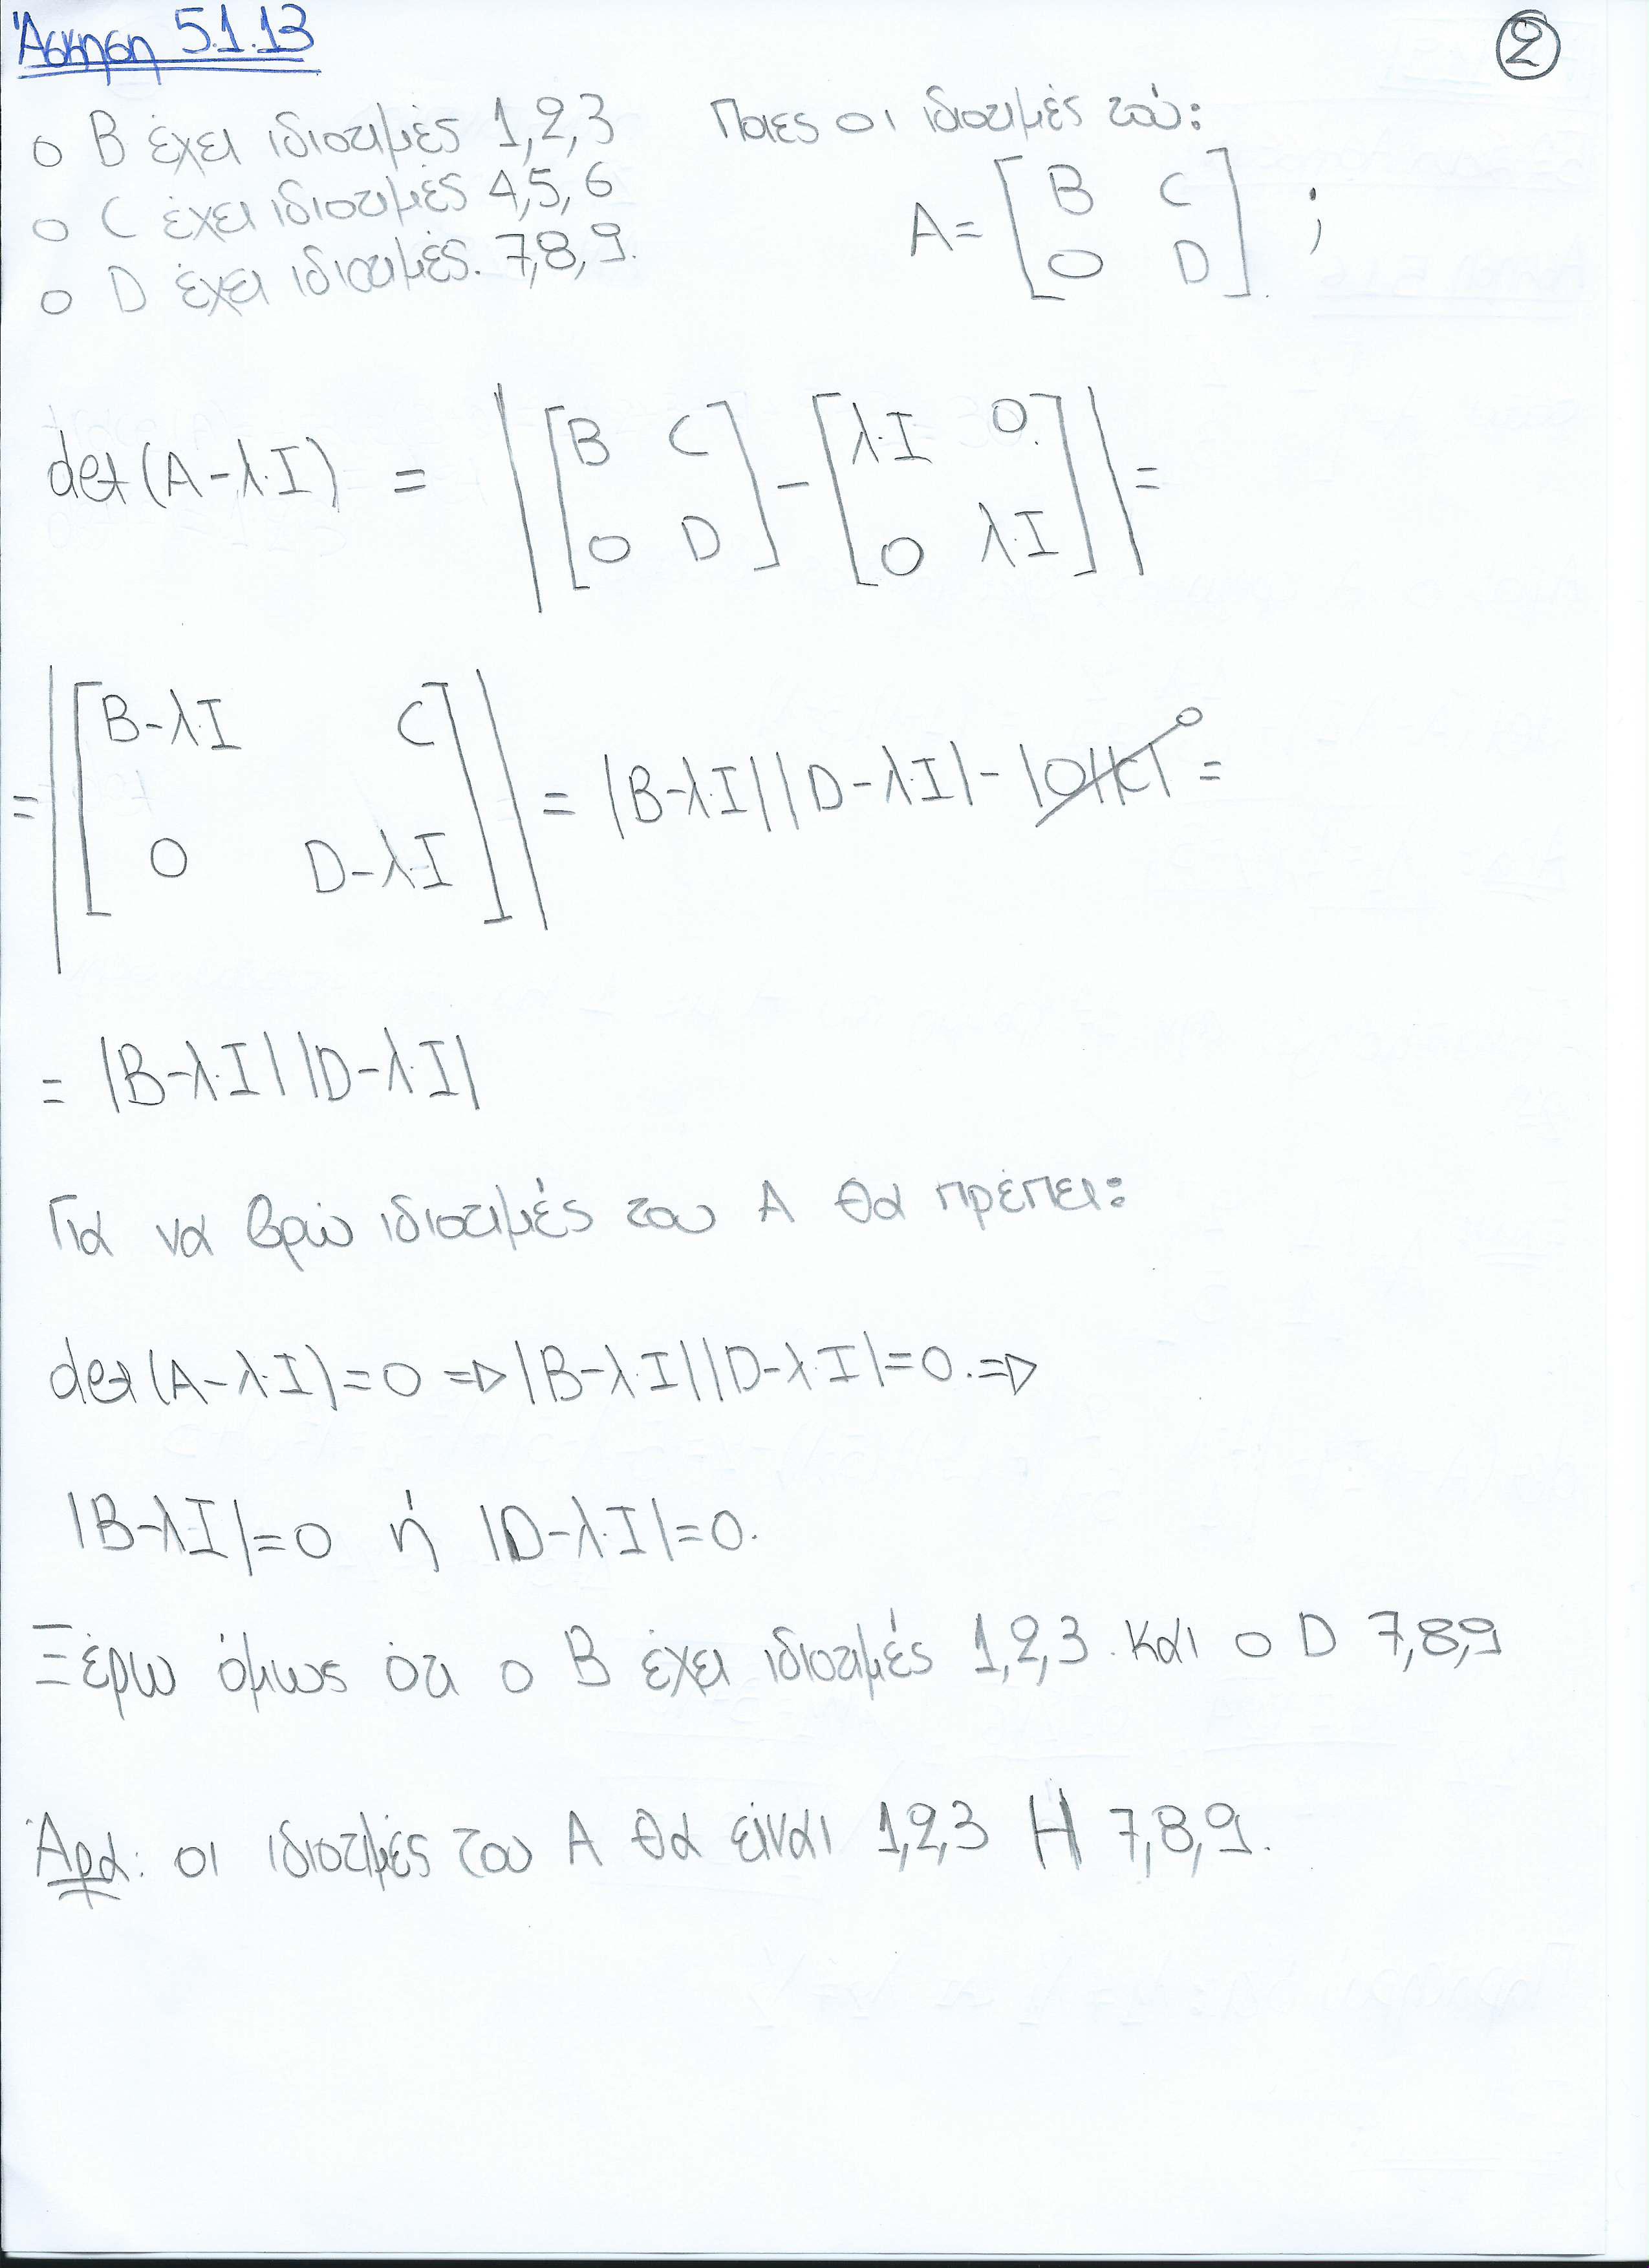 Άσκηση 5.1.13
②
ο Β έχει ιδιοτιμές 1,2,3 Ποιες οι ιδιοτιμές τού:
ο C έχει ιδιοτιμές 4,5,6
ο D έχει ιδιοτιμές. 7,8,9.
A= [B C
0 D] ;
det(A-λ·I) = |[B C
0 D] - [λ·I 0
0 λ·I]| =
= |[B-λ·I C
0 D-λ·I]| = |B-λ·I||D-λ·I| - |0||C| 0 =
= |B-λ·I||D-λ·I|
Για να βρώ ιδιοτιμές του Α θα πρέπει:
det(A-λ·I)=0 => |B-λ·I||D-λ·I|=0. =>
|B-λI|=0 ή |D-λ·I|=0.
Ξέρω όμως ότι ο Β έχει ιδιοτιμές 1,2,3. και ο D 7,8,9
Άρα: οι ιδιοτιμές του Α θα είναι 1,2,3 Η 7,8,9.